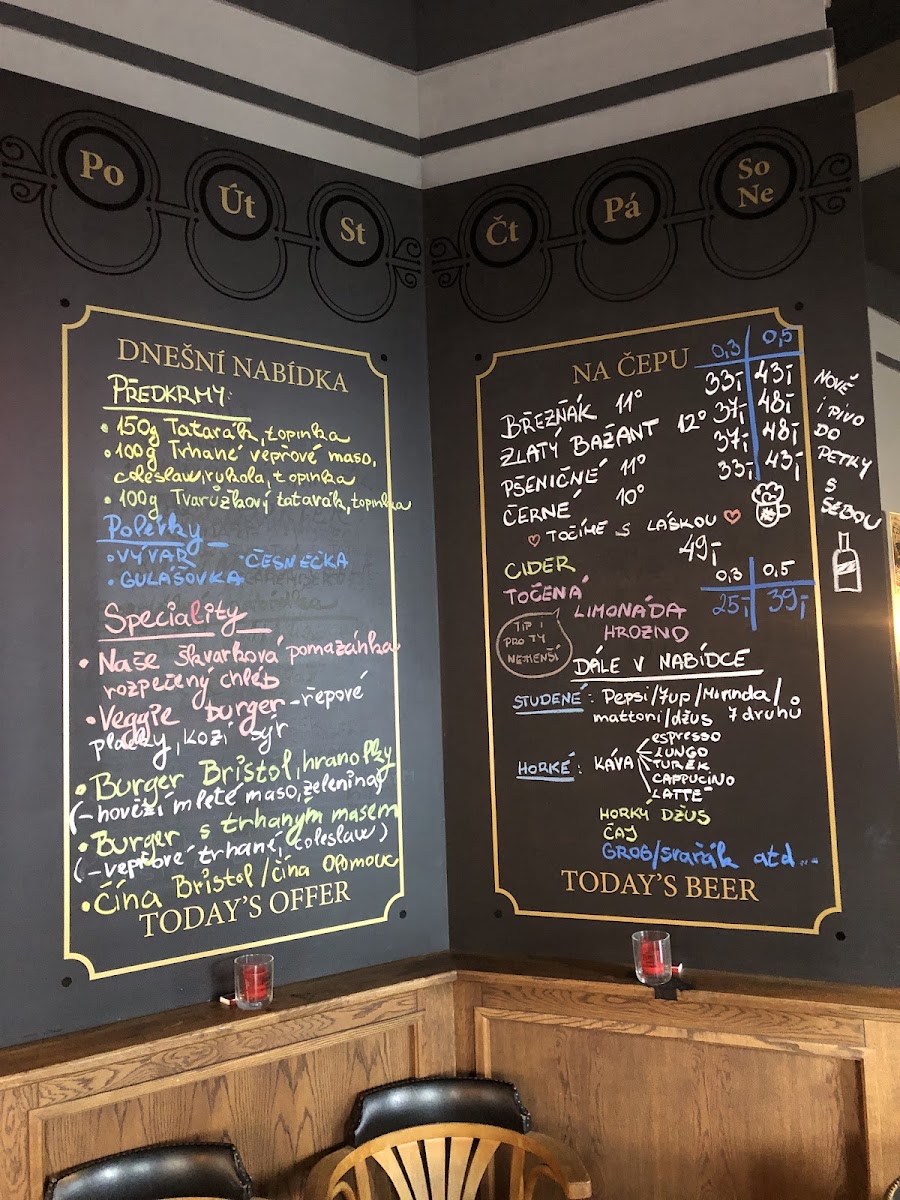 Po
Út
St
Čt
Pá
So
Ne
DNEŠNÍ NABÍDKA
PŘEDKRMY:
• 150g Tatarák, topinka
• 100g Trhané vepřové maso,
coleslaw, rukola, topinka
• 100g Tvarůžkový tatarák, topinka
Polévky
• VÝVAR • ČESNEČKA
• GULÁŠOVKA
Speciality
• Naše škvarková pomazánka
rozpečený chléb
• Veggie burger - řepové
placky, kozí sýr
• Burger Bristol, hranolky
(- hovězí mleté maso, zelenina)
• Burger s trhaným masem
(- vepřové trhané, coleslaw)
• Čína Bristol / čína Olomouc
TODAY'S OFFER
NA ČEPU 0,3 0,5
BŘEZŇÁK 11° 33,- 43,-
ZLATÝ BAŽANT 12° 37,- 48,-
PŠENIČNÉ 11° 37,- 48,-
ČERNÉ 10° 33,- 43,-
♡ TOČÍME S LÁSKOU ♡
CIDER 49,-
TOČENÁ 0,3 0,5
LIMONÁDA 25,- 39,-
HROZNO
TIP I
PRO TY
NEJMENŠÍ
DÁLE V NABÍDCE
STUDENÉ: Pepsi/7up/Mirinda/
mattoni/džus 7 druhů
HORKÉ: KÁVA
espresso
LUNGO
TUREK
CAPPUCINO
LATTÉ
HORKÝ DŽUS
ČAJ
GROG/svařák atd...
TODAY'S BEER
NOVĚ
I PIVO
DO
PETKY
S
SEBOU